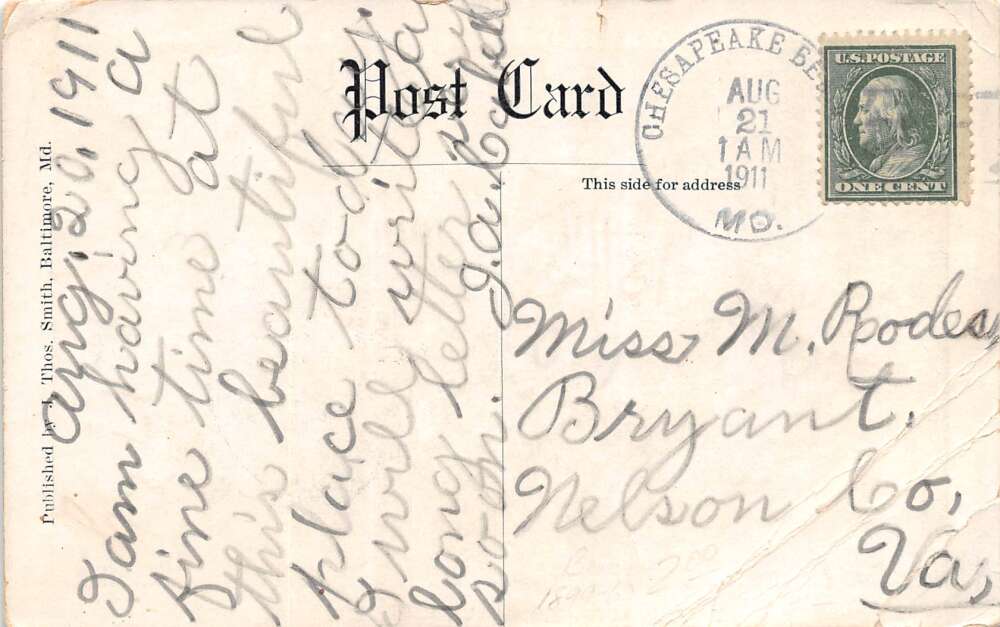 Post Card
This side for address
Published by J. Thos. Smith, Baltimore, Md.
CHESAPEAKE BE
AUG
21
1 AM
1911
MD.
U.S. POSTAGE
ONE CENT
Aug. 20, 1911
I am having a
fine time at
this beautiful
place today.
I will write a
long letter
soon.
Miss M. Rodes,
Bryant.
Nelson Co,
Va,